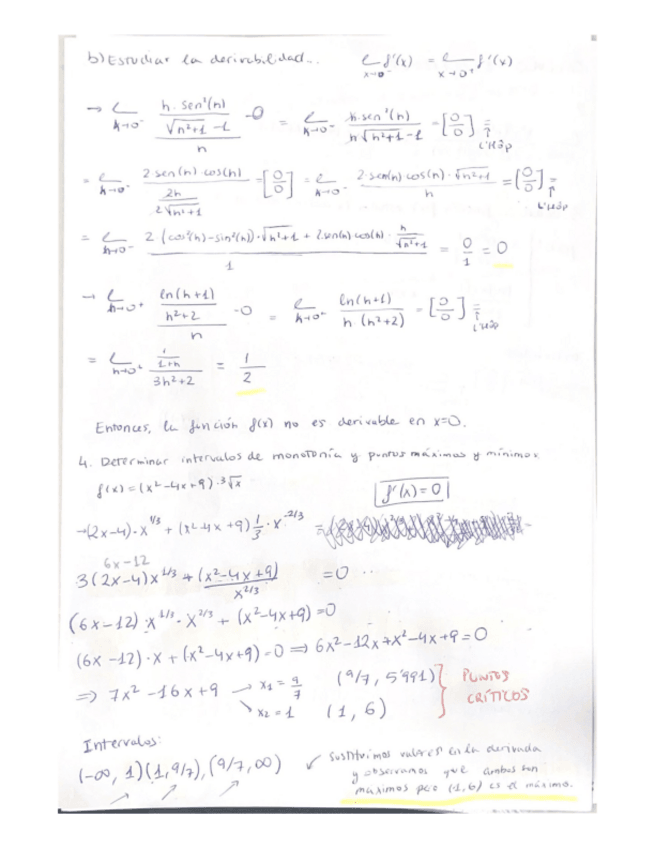 b) Estudiar la derivabilidad... ℓ x→0⁻ f'(x) = ℓ x→0⁺ f'(x)
→ ℓ h→0⁻ ((h·sen²(h))/(√(h²+1) -1) -0)/h = ℓ h→0⁻ (h·sen²(h))/(h√(h²+1) -1) = [0/0] = ↑ L'Hôp
= ℓ h→0⁻ (2 sen(h) cos(h))/(2h/(2√(h²+1))) = [0/0] = ℓ h→0⁻ (2·sen(h) cos(h)·√(h²+1))/h = [0/0] = ↑ L'Hôp
= ℓ h→0⁻ (2·(cos²(h)-sin²(h))·√(h²+1) + 2sen(h)cos(h)·h/√(h²+1))/1 = 0/1 = 0
→ ℓ h→0⁺ ((ln(h+1))/(h²+2) -0)/h = ℓ h→0⁺ (ln(h+1))/(h·(h²+2)) = [0/0] = ↑ L'Hôp
= ℓ h→0⁺ (1/(1+h))/(3h²+2) = 1/2
Entonces, la función f(x) no es derivable en x=0.
4. Determinar intervalos de monotonía y puntos máximos y mínimos
f(x) = (x²-4x+9)·³√x f'(x)=0
→(2x-4)·x^1/3 + (x²-4x+9) 1/3·x^-2/3 =
6x-12
3(2x-4)x^1/3 + (x²-4x+9)/x^2/3 =0
(6x-12)·x^1/3·x^2/3 + (x²-4x+9)=0
(6x-12)·x+(x²-4x+9)=0 ⇒ 6x²-12x+x²-4x+9=0
⇒ 7x²-16x+9 → x₁=9/7 (9/7, 5'991) PUNTOS
↘ x₂=1 (1,6) CRÍTICOS
Intervalos:
(-∞,1)(1,9/7),(9/7,∞) ✓ Sustituimos valores en la derivada
y observamos que ambos son
máximos pero (1,6) es el máximo.